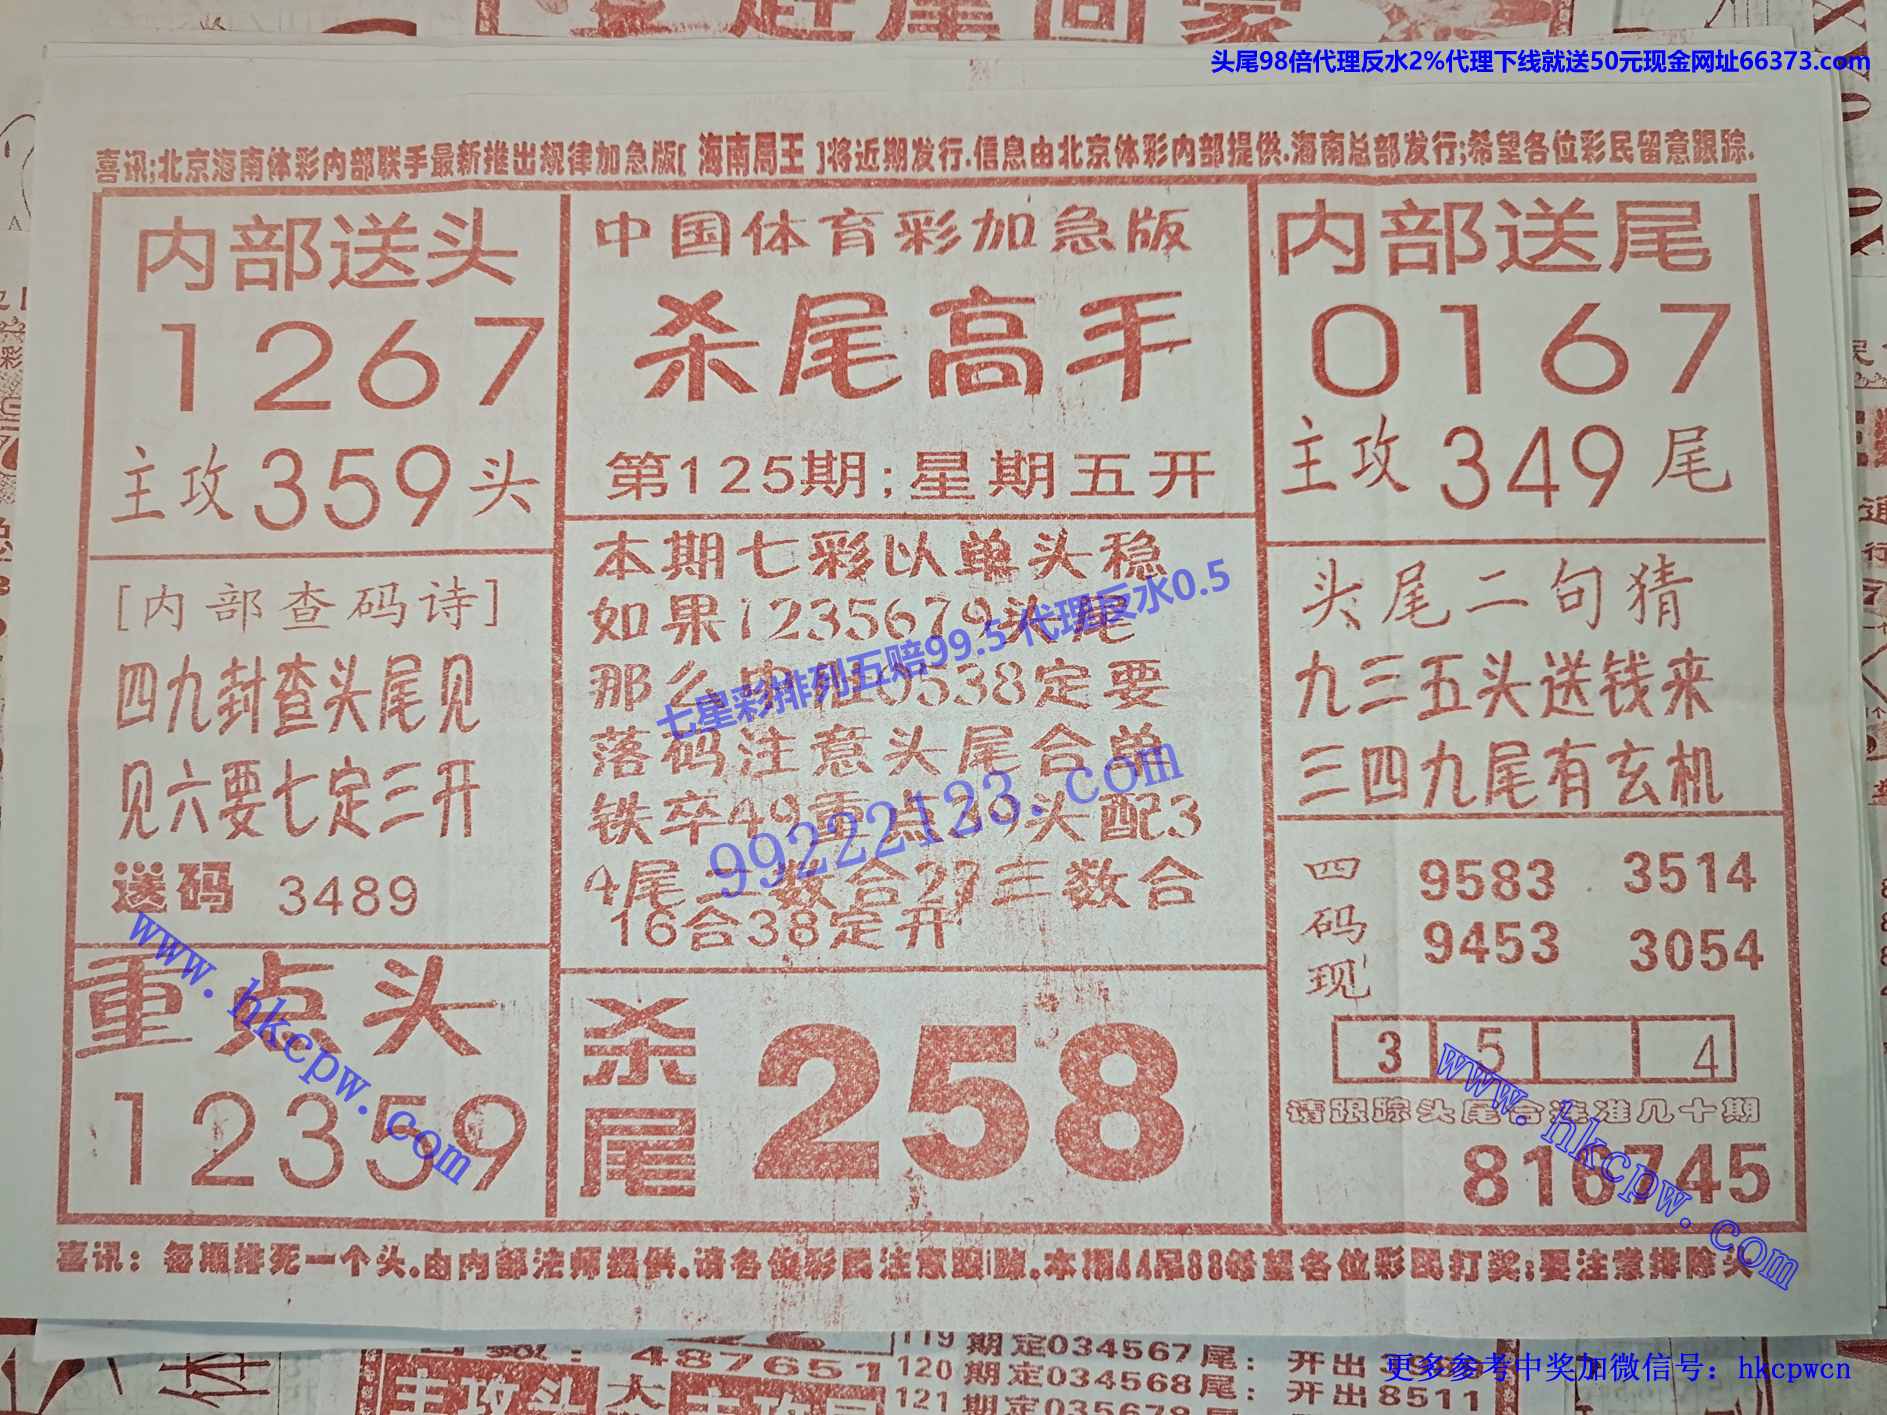 头尾98倍代理反水2%代理下线就送50元现金网址66373.com
喜讯;北京海南体彩内部联手最新推出规律加急版[海南局王]将近期发行.信息由北京体彩内部提供.海南总部发行;希望各位彩民留意跟踪.
内部送头
1267
主攻359头
[内部查码诗]
四九封查头尾见
见六要七定三开
送码 3489
重点头
12359
中国体育彩加急版
杀尾高手
第125期;星期五开
本期七彩以单头稳
如果1235679头尾
那么 0538定要
落码注意头尾合单
铁卒49重点39头配3
4尾二数合27三数合
16合38定开
杀尾
258
内部送尾
0167
主攻349尾
头尾二句猜
九三五头送钱来
三四九尾有玄机
四码现
9583 3514
9453 3054
3 5 4
请跟踪头尾合连准几十期
816745
喜讯：每期排死一个头.由内部法师提供.请各位彩民注意跟踪.本期44尾88希望各位彩民打奖;要注意排除头
七星彩排列五赔99.5 代理反水0.5
99222123.com
www.hkcpw.com
www.hkcpw.com
487651
119期定034567尾：开出
120期定034568尾：开出8511
121
更多参考中奖加微信号：hkcpwcn